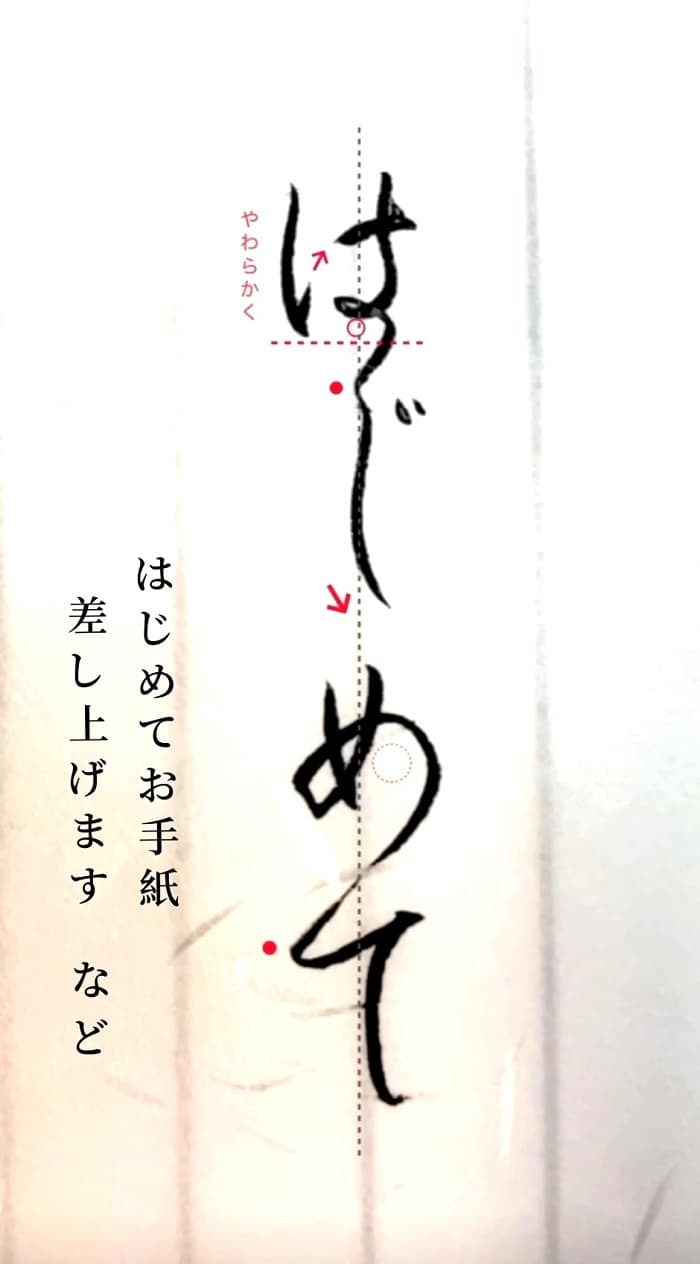 はじめて
やわらかく
はじめてお手紙
差し上げます　など